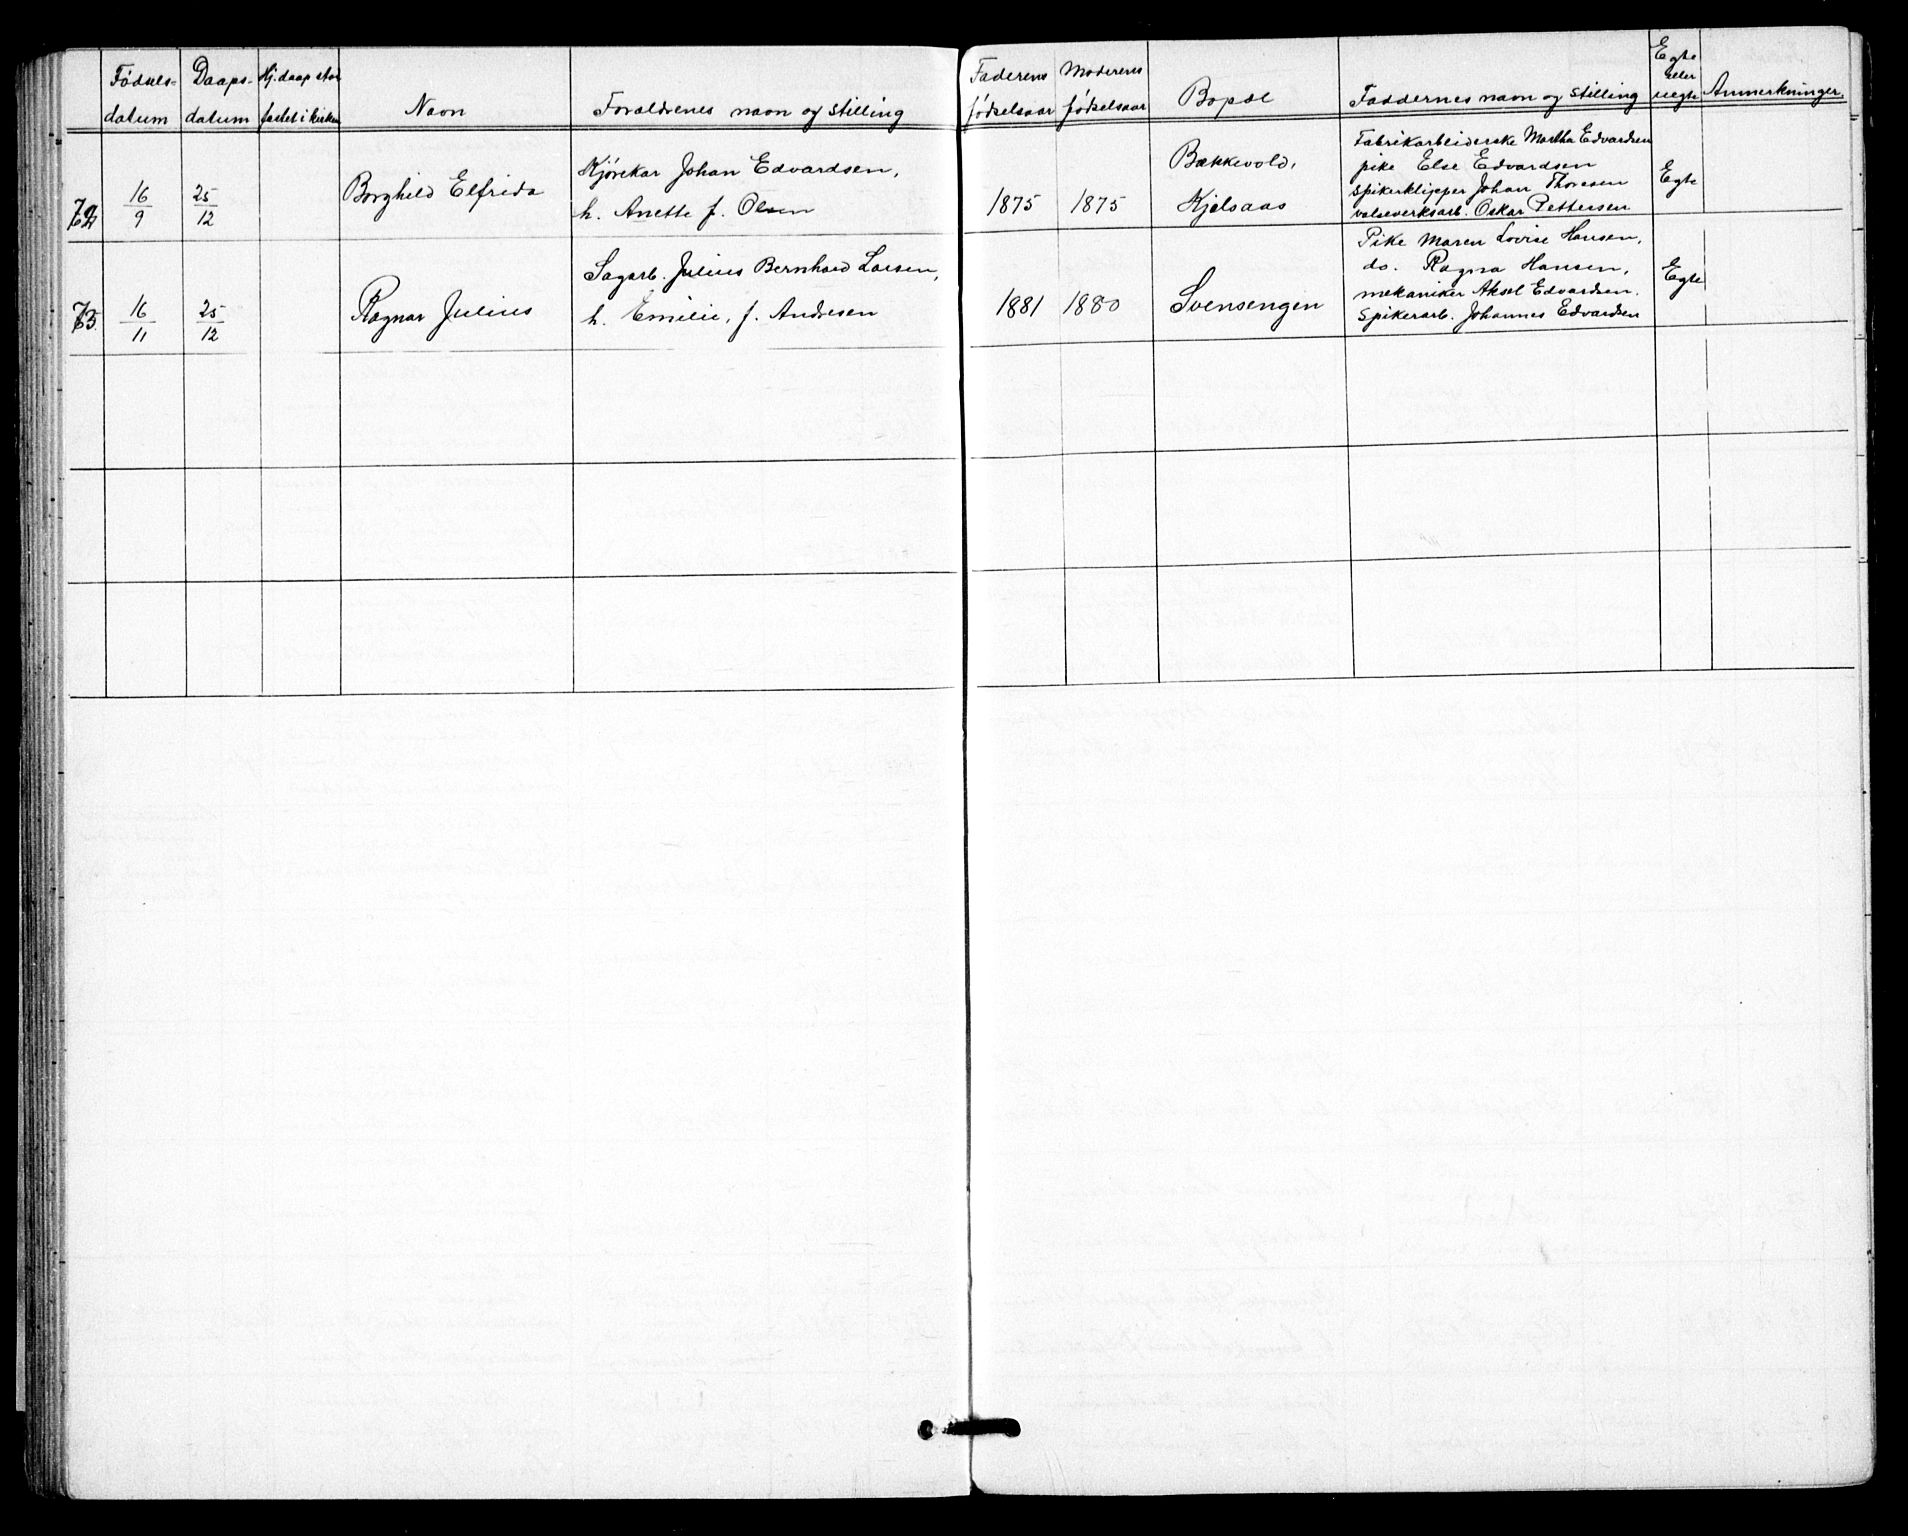 Fødsels-
datum
Daaps-
datum
Hj.daap stad-
fæstet i kirken
Navn
Forældrenes navn og stilling
Faderens
fødselsaar
Moderens
fødselsaar
Bopæl
Faddernes navn og stilling
Egte
eller
uegte
Anmerkninger
72
16
9
25
12
Borghild Elfrida
Kjørekar Johan Edvardsen,
h. Anette f. Olsen
1875
1875
Bækkevold,
Kjelsaas
Fabrikarbeiderske Martha Edvardsen
pike Else Edvardsen
spikerklipper Johan Thoresen
valseverksarb. Oskar Pettersen
Egte
73.
16
11
25
12
Ragnar Julius
Sagarb. Julius Bernhard Larsen,
h. Emilie, f. Andresen
1881
1880
Svensengen
Pike Maren Lovise Hansen,
do. Ragna Hansen,
mekaniker Aksel Edvardsen.
Spikerarb. Johannes Edvardsen
Egte